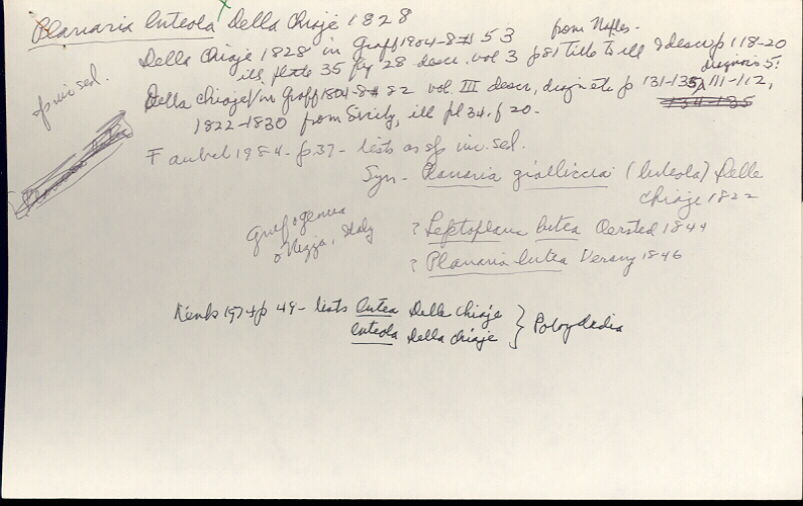 Planaria luteola Della Chiaje 1828
Della Chiaje 1828 in Graff 1904-8 # 53 from Naples.
ill. plate 35 fig 28 descr. vol 3 p81 title to ill & descr p 118-20
diagnosis 5.
sp. inc. sed.
Della Chiaje in Graff 1904-8 # 82 vol. III descr, diagn etc p 131-135, 111-112,
134-135
1822-1830 from Sicily, ill pl 34. f 20.
Faubel 1984 - p. 37 - lists as sp inc. sed.
Syn - Planaria gialliccia (luteola) Delle
Chiaje 1822
Gulf of Genua
o Nizza, Italy
? Leptoplana lutea Oersted 1844
? Planaria lutea Verany 1846
Kenk 1974 p 49 - lists lutea Delle Chiaje
luteola Della Chiaje } Polycladia